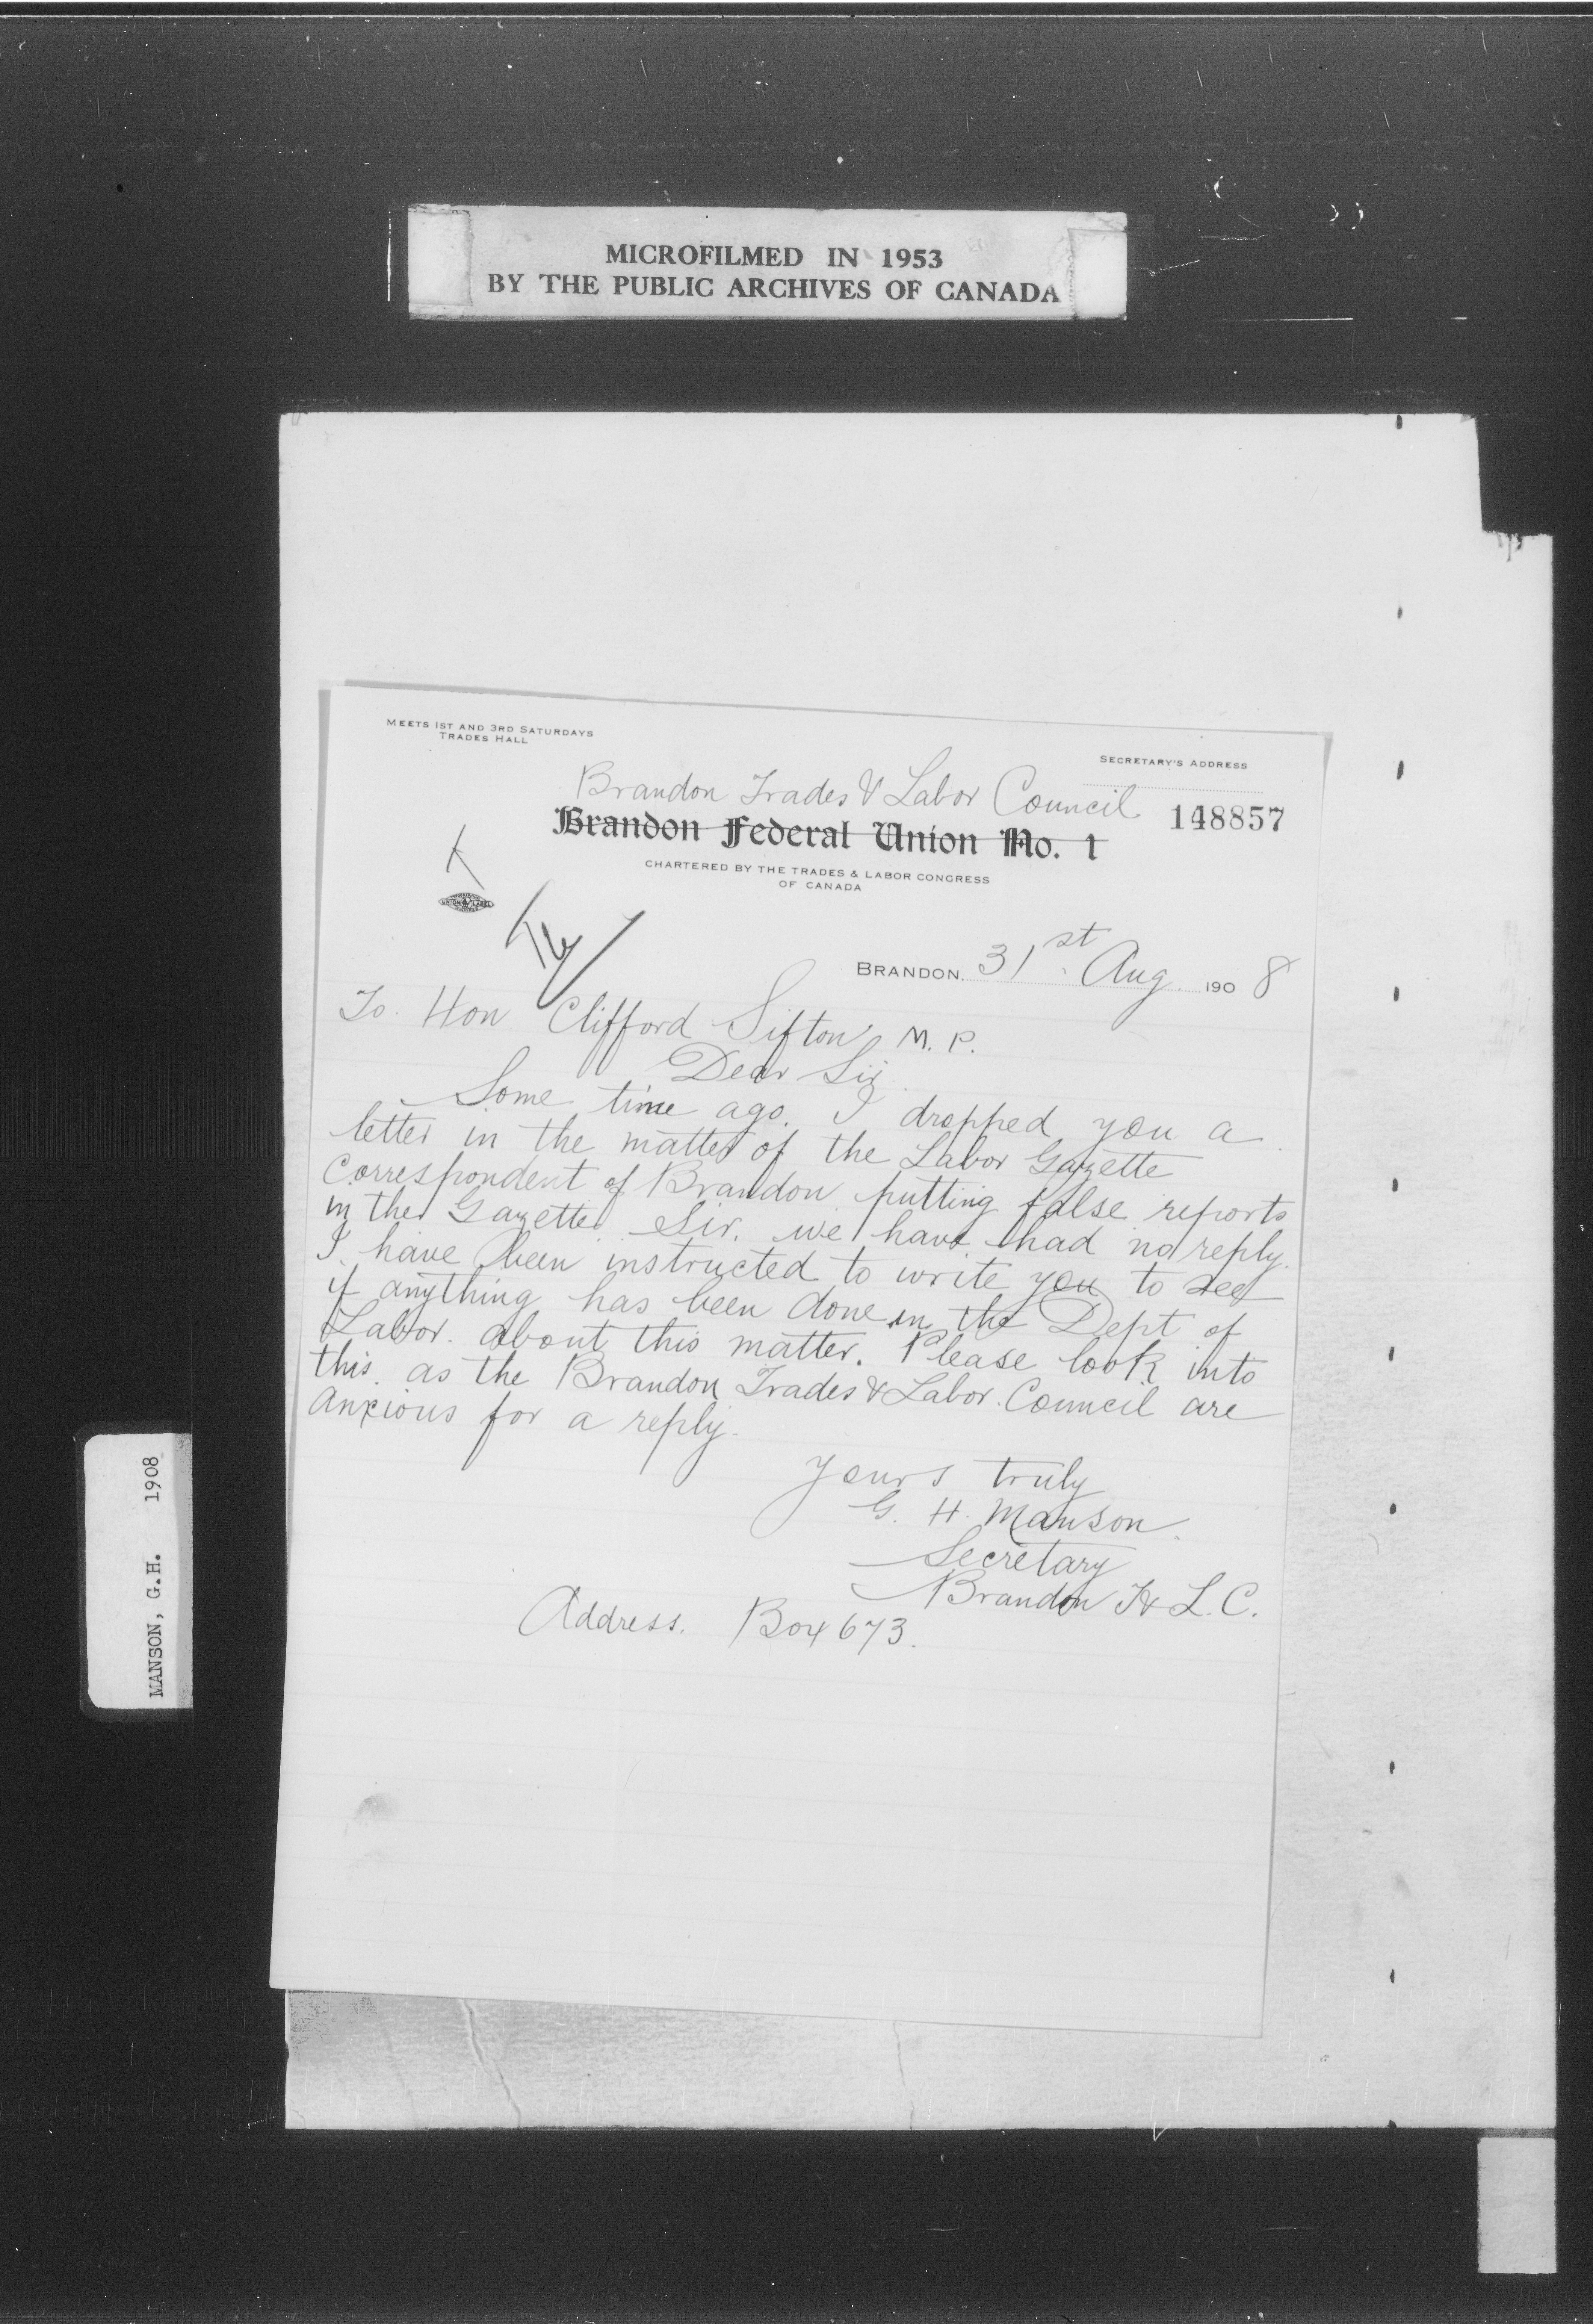 MICROFILMED IN 1953
BY THE PUBLIC ARCHIVES OF CANADA
MEETS 1ST AND 3RD SATURDAYS
TRADES HALL
SECRETARY'S ADDRESS
Brandon Trades & Labor Council
148857
Brandon Federal Union No. 1
CHARTERED BY THE TRADES & LABOR CONGRESS
OF CANADA
BRANDON, 31st Aug 1908
To. Hon Clifford Sifton M. P.
Dear Sir
Some time ago. I dropped you a
letter in the matter of the Labor Gazette
Correspondent of Brandon putting false reports
in the Gazette. Sir. we have had no reply.
I have been instructed to write you to see
if anything has been done in the Dept of
Labor. about this matter. Please look into
this. as the Brandon Trades & Labor. Council are
anxious for a reply.
Yours truly
G. H. Manson.
Secretary
Brandon T & L. C.
Address. Box 673.
MANSON, G.H. 1908